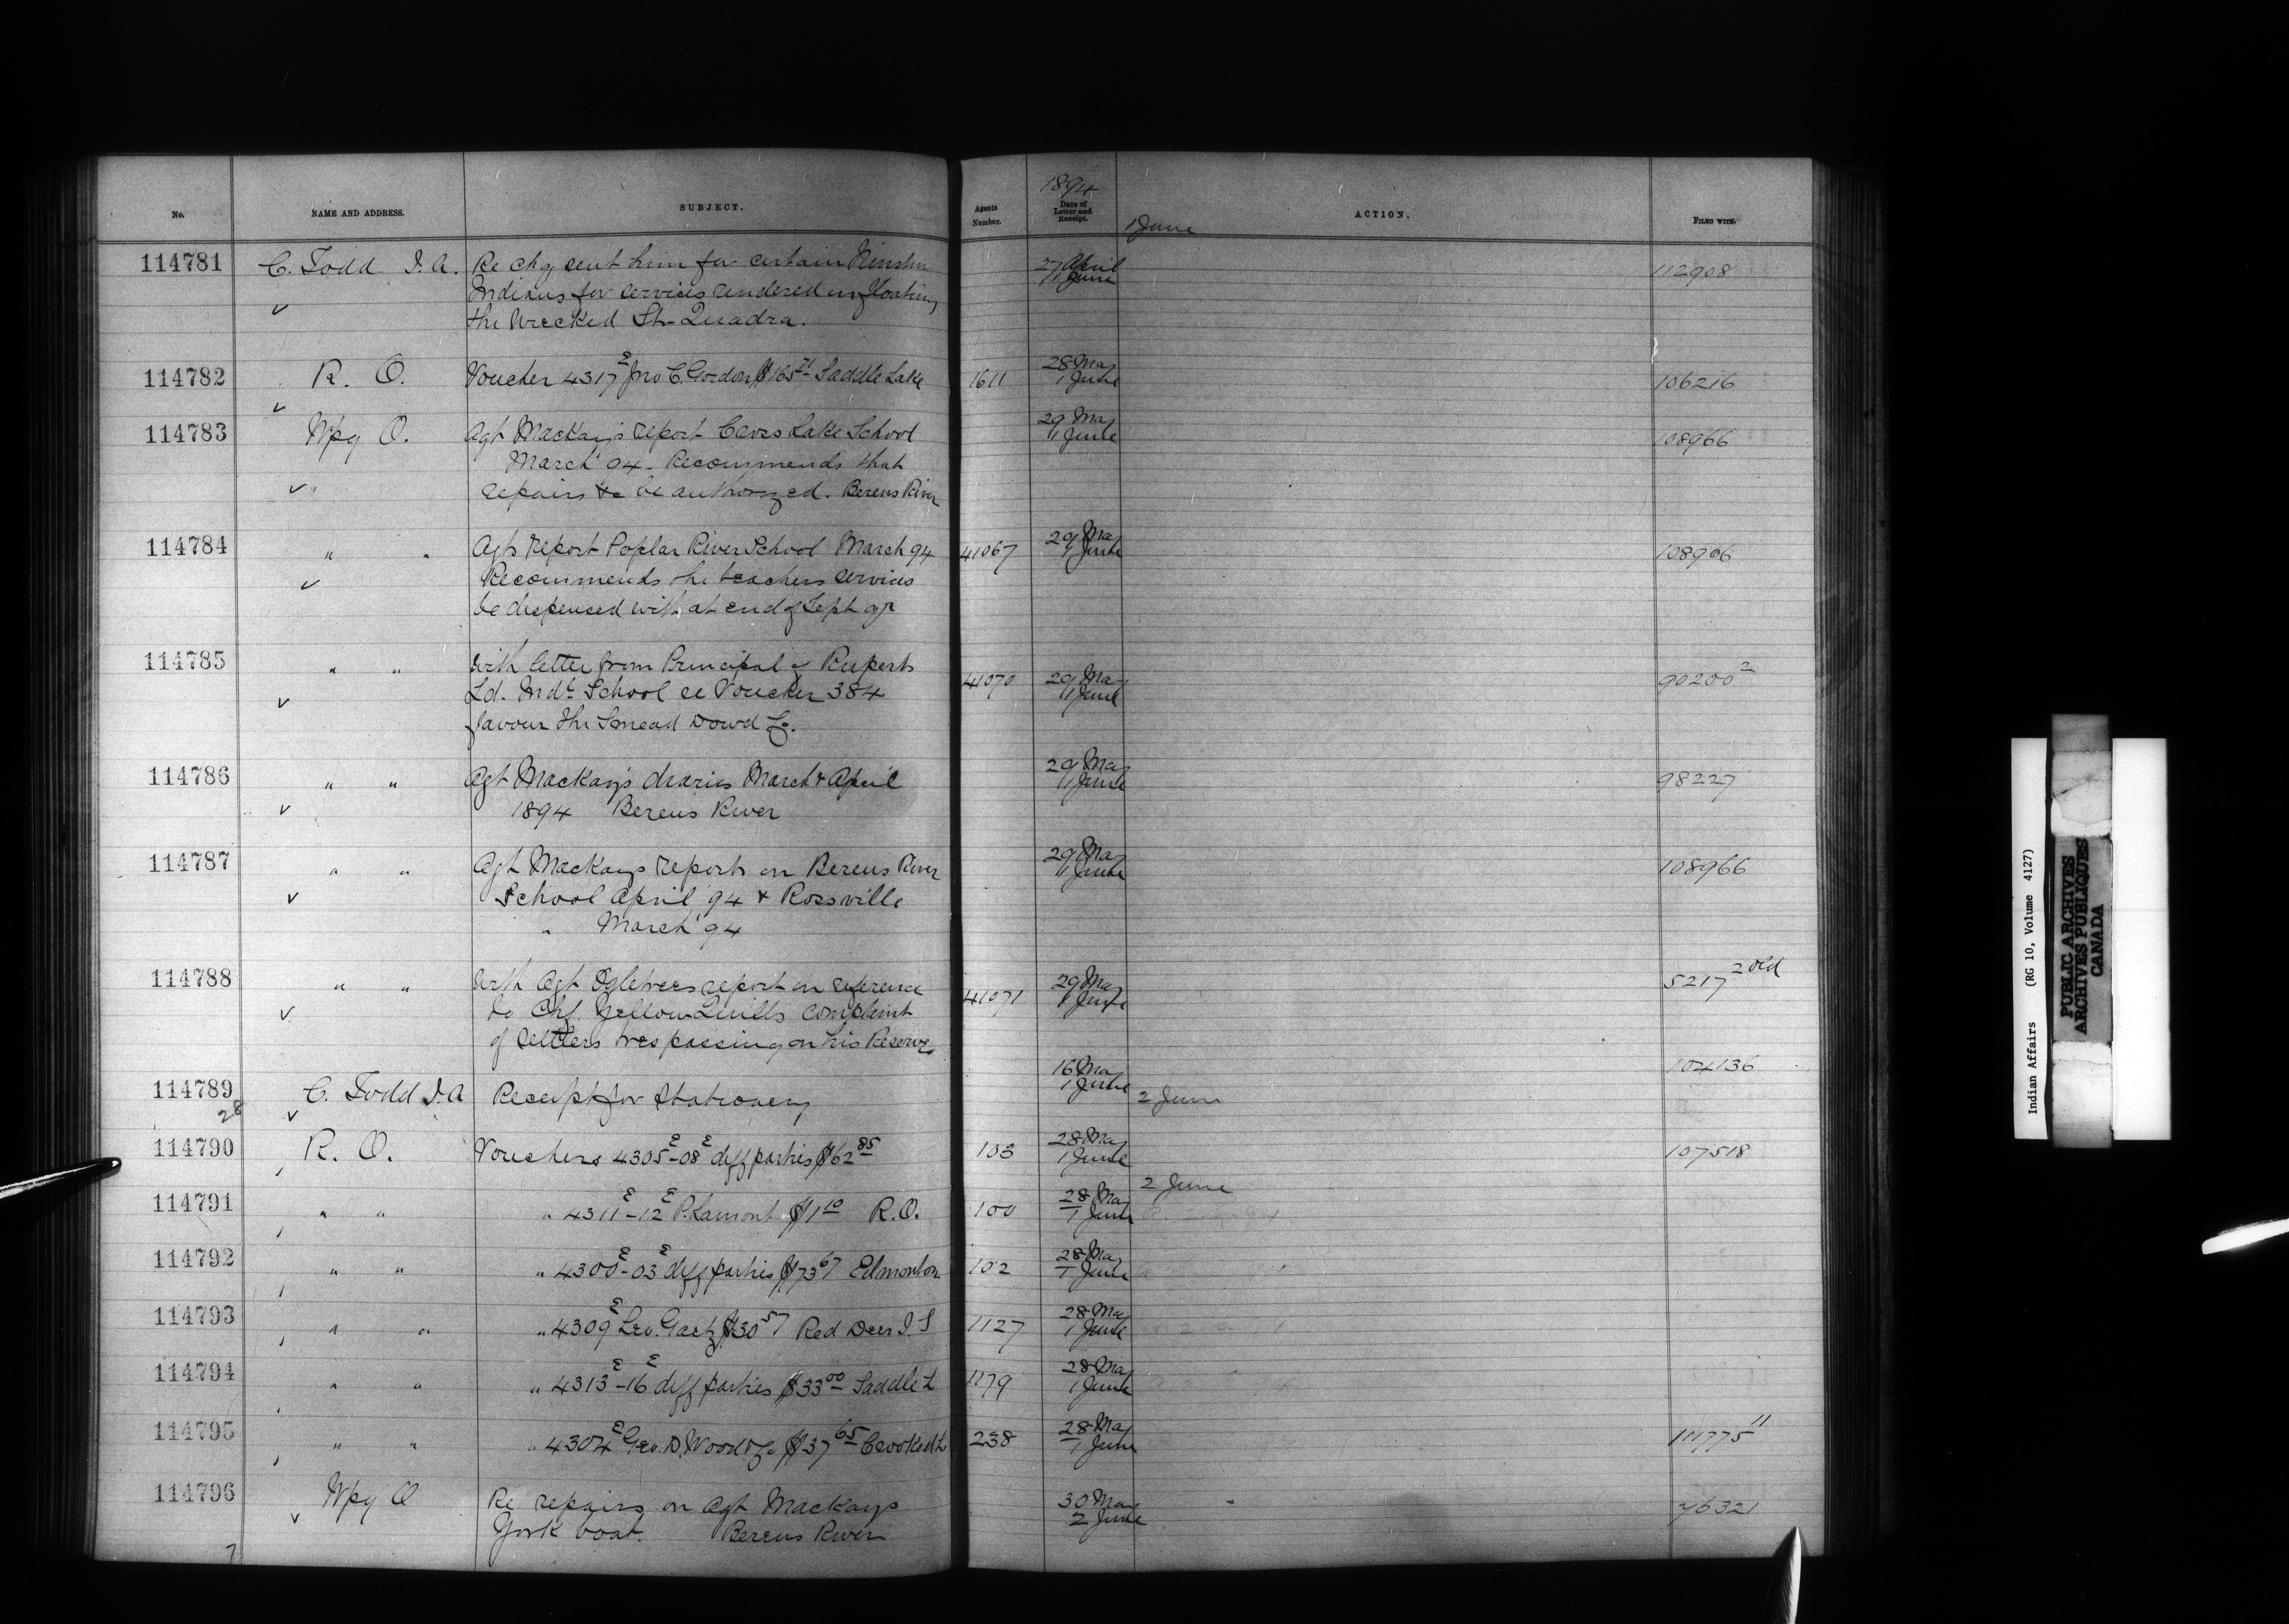 No. NAME AND ADDRESS. SUBJECT. Agents Number. 1894 Date of Letter and Receipt. ACTION. FILED WITH.
1 June
114781 C. Todd I. A. Re chq sent him for certain 27 April 112908
Indians for services rendered in floating 1 June
the Wrecked Str Quadra.
114782 R. O. Voucher 4317 E Jno C. Gordon $165 71 Saddle Lake 1611 28 May 106216
1 June
114783 Wpg O. Agt Mackay's report Cross Lake School 29 May 108966
March 94 - Recommends that 1 June
repairs to be authorized. Berens River
114784 " " Agts report Poplar River School March 94 41067 29 May 108966
Recommends the teachers services 1 June
be dispensed with at end of Sept qr
114785 " " With letter from Principal of Ruperts 41070 29 May 90200 2
Ld. Indl School re Voucher 384 1 June
favour The Smead Dowd Co.
114786 " " Agt Mackay's diaries March & April 29 May 98227
1894 Berens River 1 June
114787 " " Agt Mackays reports on Berens River 29 May 108966
School April '94 & Rossville 1 June
" March '94
114788 " " With Agt Ogletrees report in reference 41071 29 May 5217 2 old
to Chf. Yellow Quills complaint 1 June
of settlers trespassing on his Reserve
114789 C. Todd I. A Receipt for Stationery 16 May 104136
28 1 June
2 June
114790 R. O. Vouchers 4305 E - 08 E diff parties $62 85 103 28 May 107518
1 June
2 June
114791 " " " 4311 E - 12 E P. Lamont $1 10 R.O. 100 28 May
1 June
114792 " " " 4300 E - 03 E diff parties $73 67 Edmonton 102 28 May
1 June
114793 " " " 4309 E Leo. Gaetz $30 57 Red Deer I. S 1127 28 May
1 June
114794 " " " 4313 E - 16 E diff parties $33 00 Saddle L 1179 28 May
1 June
114795 " " " 4304 E Geo. D. Wood & Co $37 65 Crooked L 238 28 May 111775 11
1 June
114796 Wpg O Re repairs on Agt Mackays 30 May 76321
York boat. Berens River 2 June
7
Indian Affairs (RG 10, Volume 4127)
PUBLIC ARCHIVES
ARCHIVES PUBLIQUES
CANADA